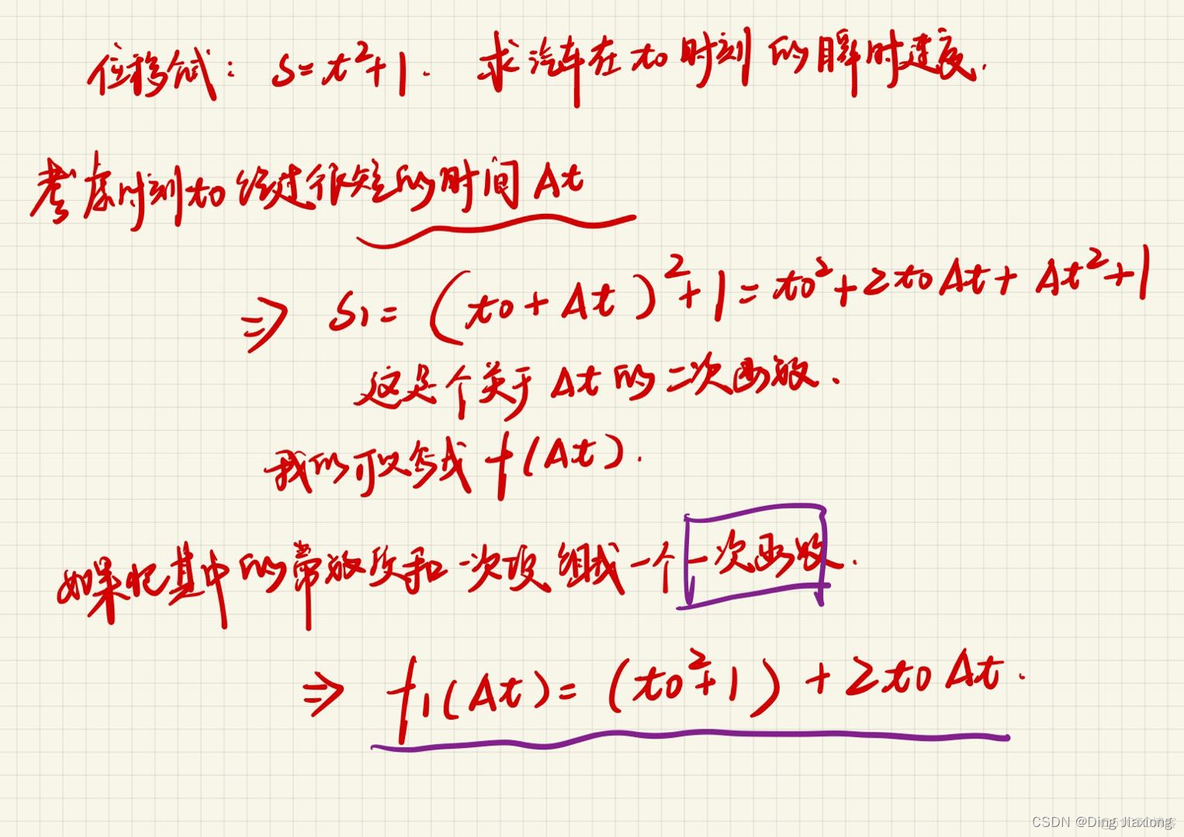 位移公式: S=t²+1. 求汽车在t0时刻的瞬时速度.
考虑时刻t0经过很短的时间Δt
⇒ S1=(t0+Δt)²+1=t0²+2t0Δt+Δt²+1
这是个关于Δt的二次函数.
我们可以写成f(Δt).
如果把其中的常数项和一次项组成一个一次函数.
⇒ f1(Δt)=(t0²+1)+2t0Δt.
CSDN @Ding Jiaxiong